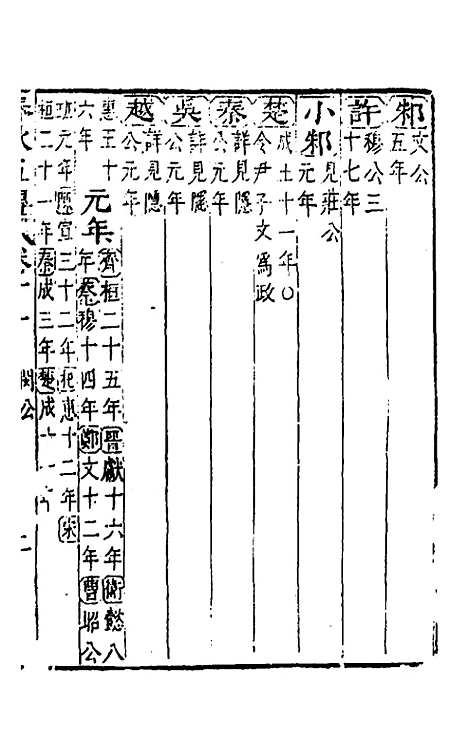 邾 文公五年
許 穆公三十七年
小邾 見莊公元年
楚 成王十一年○令尹子文爲政
秦 詳見隱公元年
吳 詳見隱公元年
越 詳見隱公元年
惠王十六年 元年 齊桓二十五年晉獻十六年衛懿八年蔡穆十四年鄭文十二年曹昭公
班元年陳宣三十二年杞惠十二年宋
桓二十一年秦成三年楚成十一
閔公
二